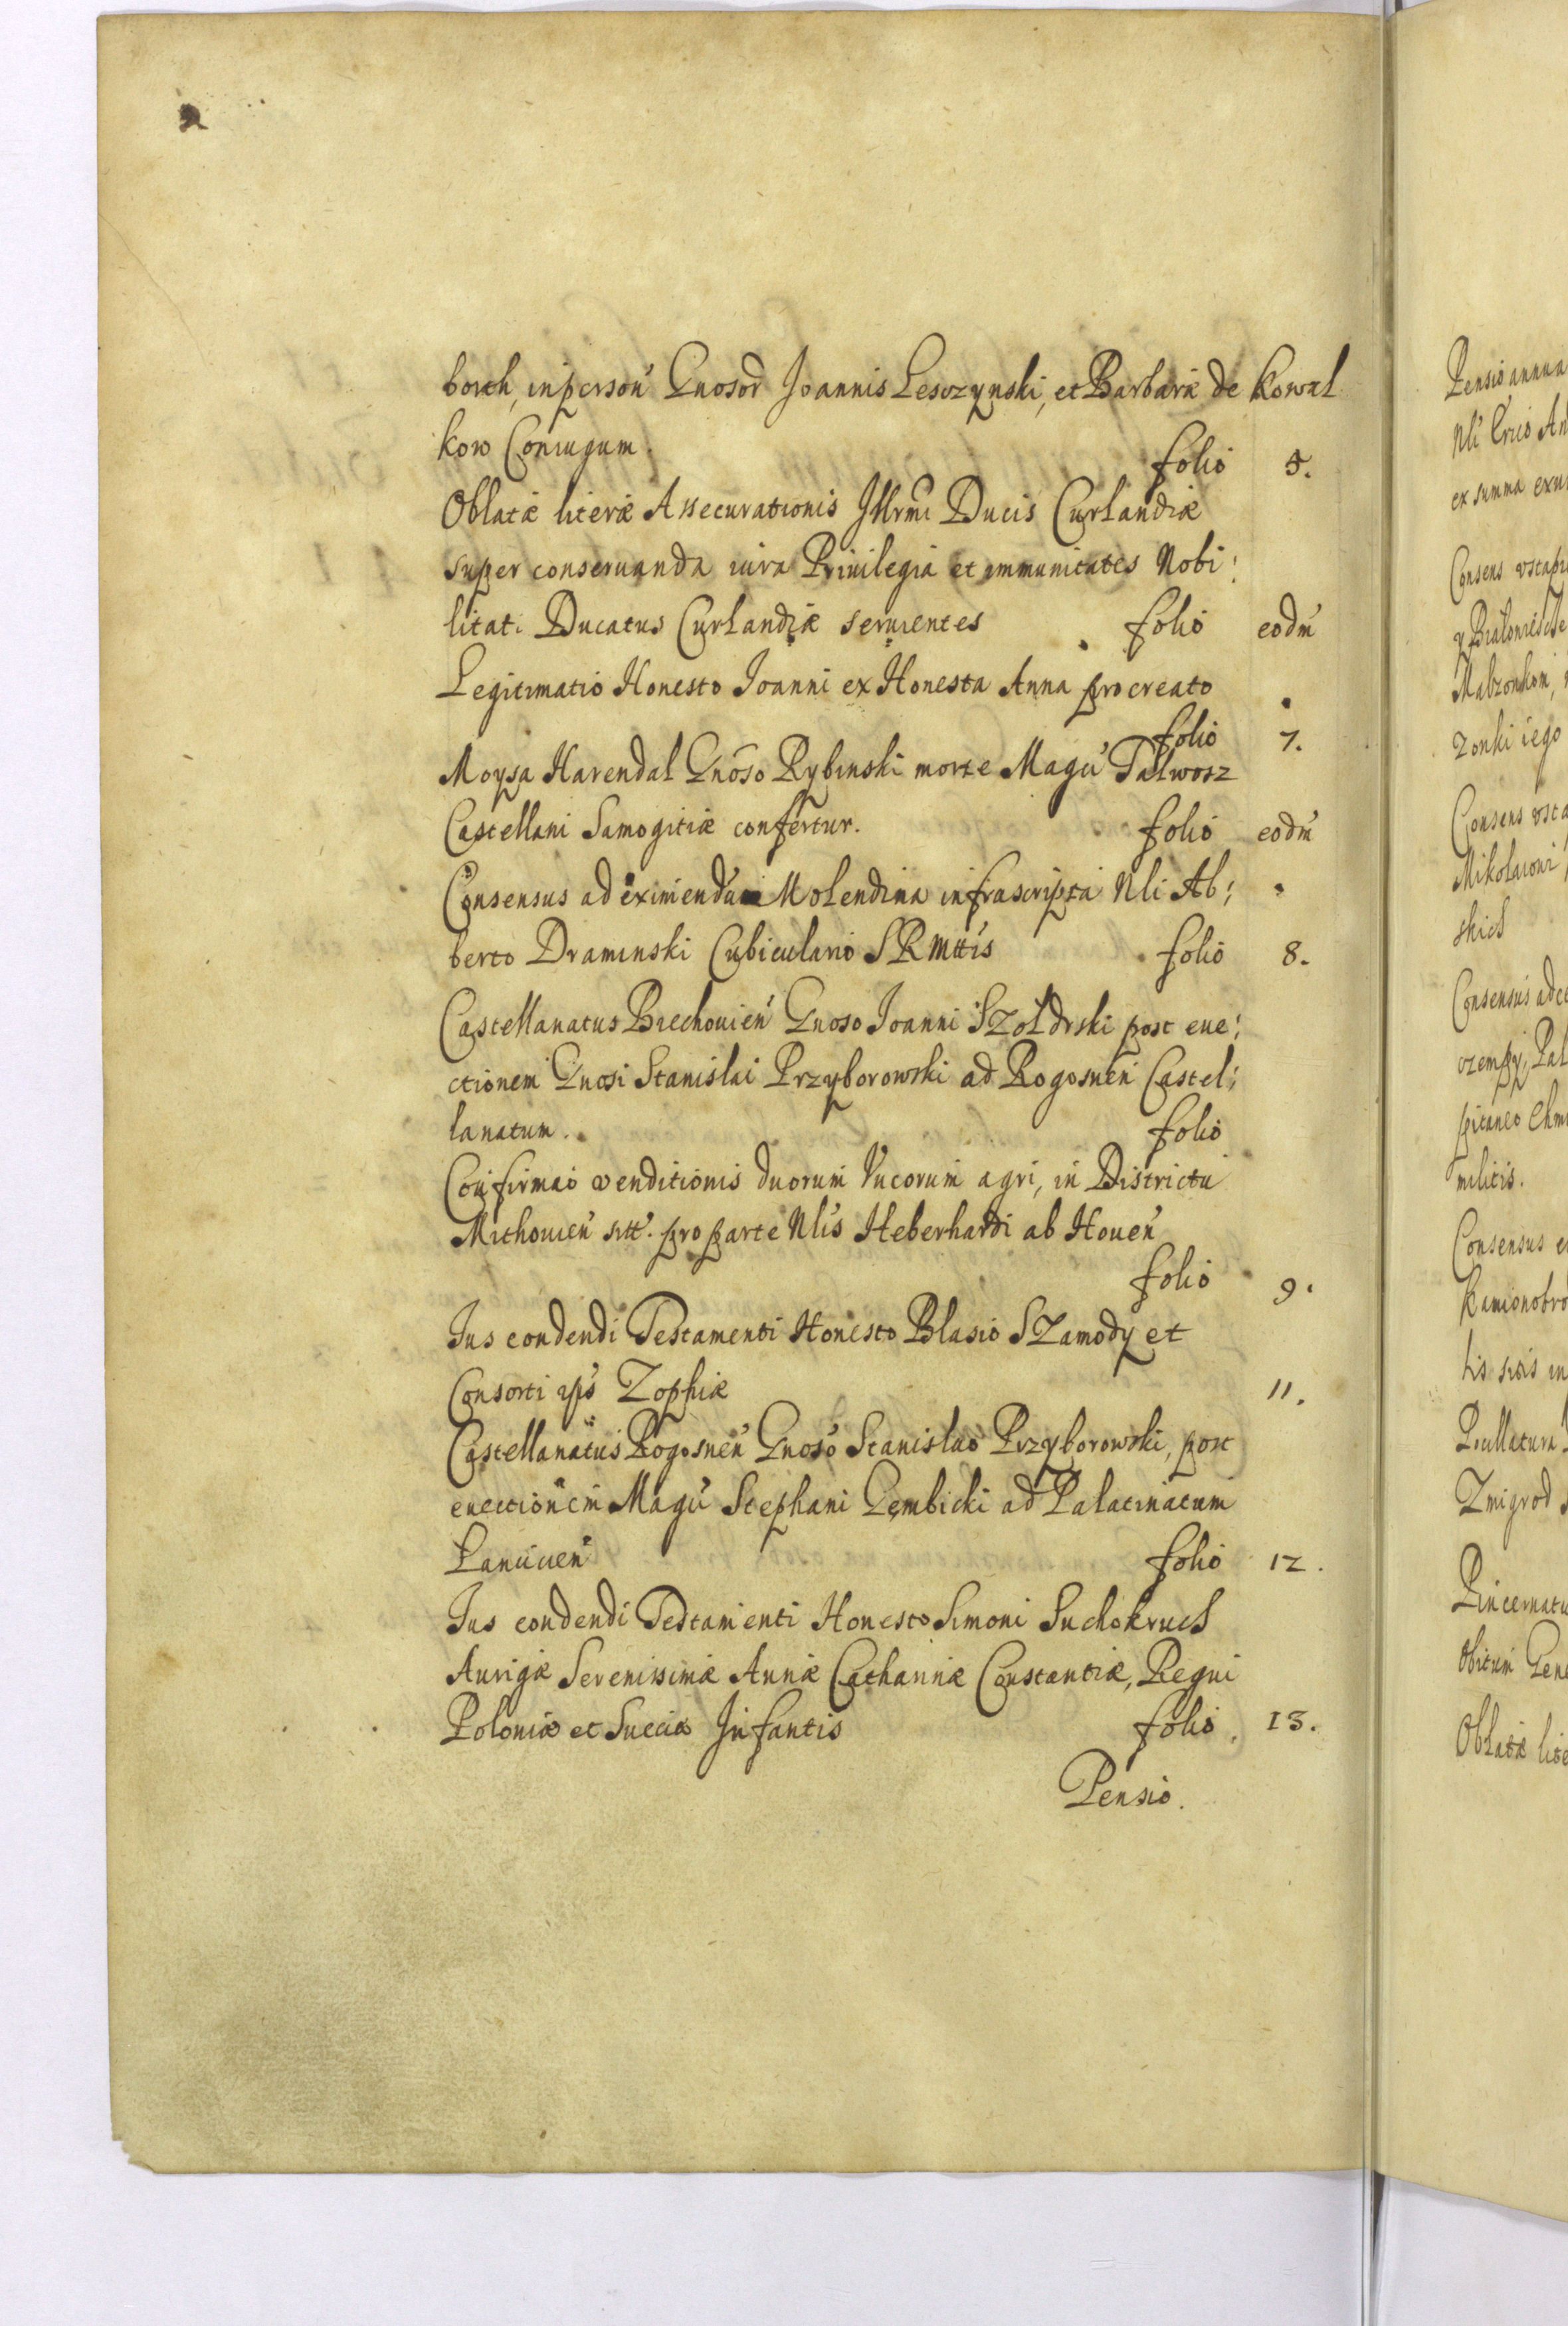 borch, in person Gnosor Joannis Lesczynski, et Barbaræ de Kowal
kow Coniugum. folio 5.
Oblatæ literæ Assecurationis Illrmi Ducis Curlandiæ
super conseruanda iura Priuilegia et immunitates Nobi:
litati Ducatus Curlandiæ seruientes folio eodm
Legitimatio Honesto Joanni ex Honesta Anna procreato
folio 7.
Moysa Harendal Gnoso Rybinski morte Magci Talwosz
Castellani Samogitiæ confertur. folio eodm
Consensus ad eximendum Molendina infrascripta Nli Al:
berto Draminski Cubiculario SRMttis folio 8.
Castellanatus Biechouien Gnoso Joanni Szołdrski post eue:
ctionem Gnosi Stanislai Przyborowski ad Rogosnen Castel:
lanatum. folio
Confirmao venditionis duorum Vucorum agri, in Districtu
Mithouien sitt. pro parte Nlis Heberhardi ab Houen
folio 9.
Ius condendi Testamenti Honesto Blasio Szamody et
Consorti ipis Zophiæ 11.
Castellanatus Rogosnen Gnoso Stanislao Przyborowski, post
euectionem Magci Stephani Gembicki ad Palatinatum
Lanciuen folio 12.
Ius condendi Testamenti Honesto Simoni Suchokruch
Aurigæ Serenissimæ Annæ Catharinæ Constantiæ, Regni
Poloniæ et Sueciæ Infantis folio 13.
Pensio.
Pensio annua
Nli
ex summa
Consens
zonki iego
Consens
Mikolaiowi
skich
Consensus
militis.
Consensus
Zmigrod
Pincernatu
Obitum Gene
Oblatæ lite